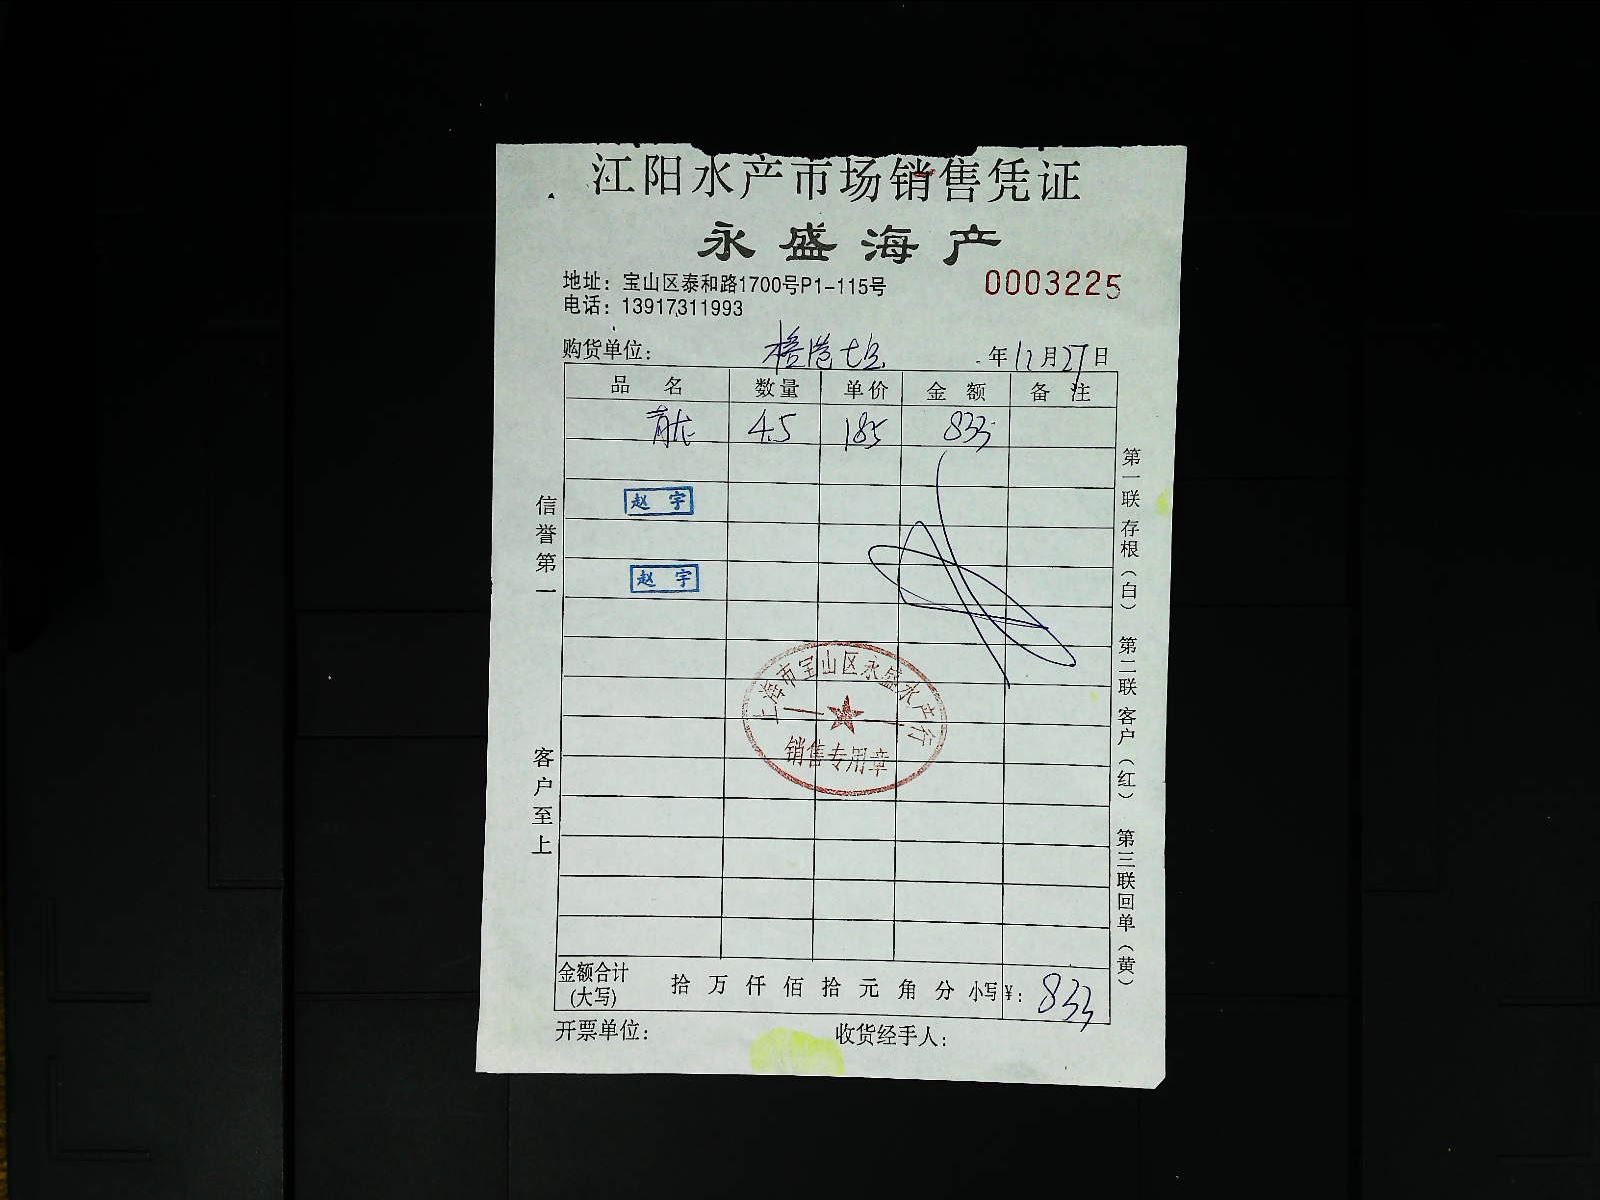 江阳水产市场销售凭证
永盛海产
地址：宝山区泰和路1700号P1-115号
0003225
电话：13917311993
购货单位： 年12月27日
品 名 数量 单价 金 额 备 注
青龙 4.5 185 833
赵 宇
赵 宇
信誉第一
客户至上
第一联 存根（白） 第二联 客户（红） 第三联 回单（黄）
上海市宝山区永盛水产行
销售专用章
金额合计 拾 万 仟 佰 拾 元 角 分 小写¥：833
(大写)
开票单位： 收货经手人：